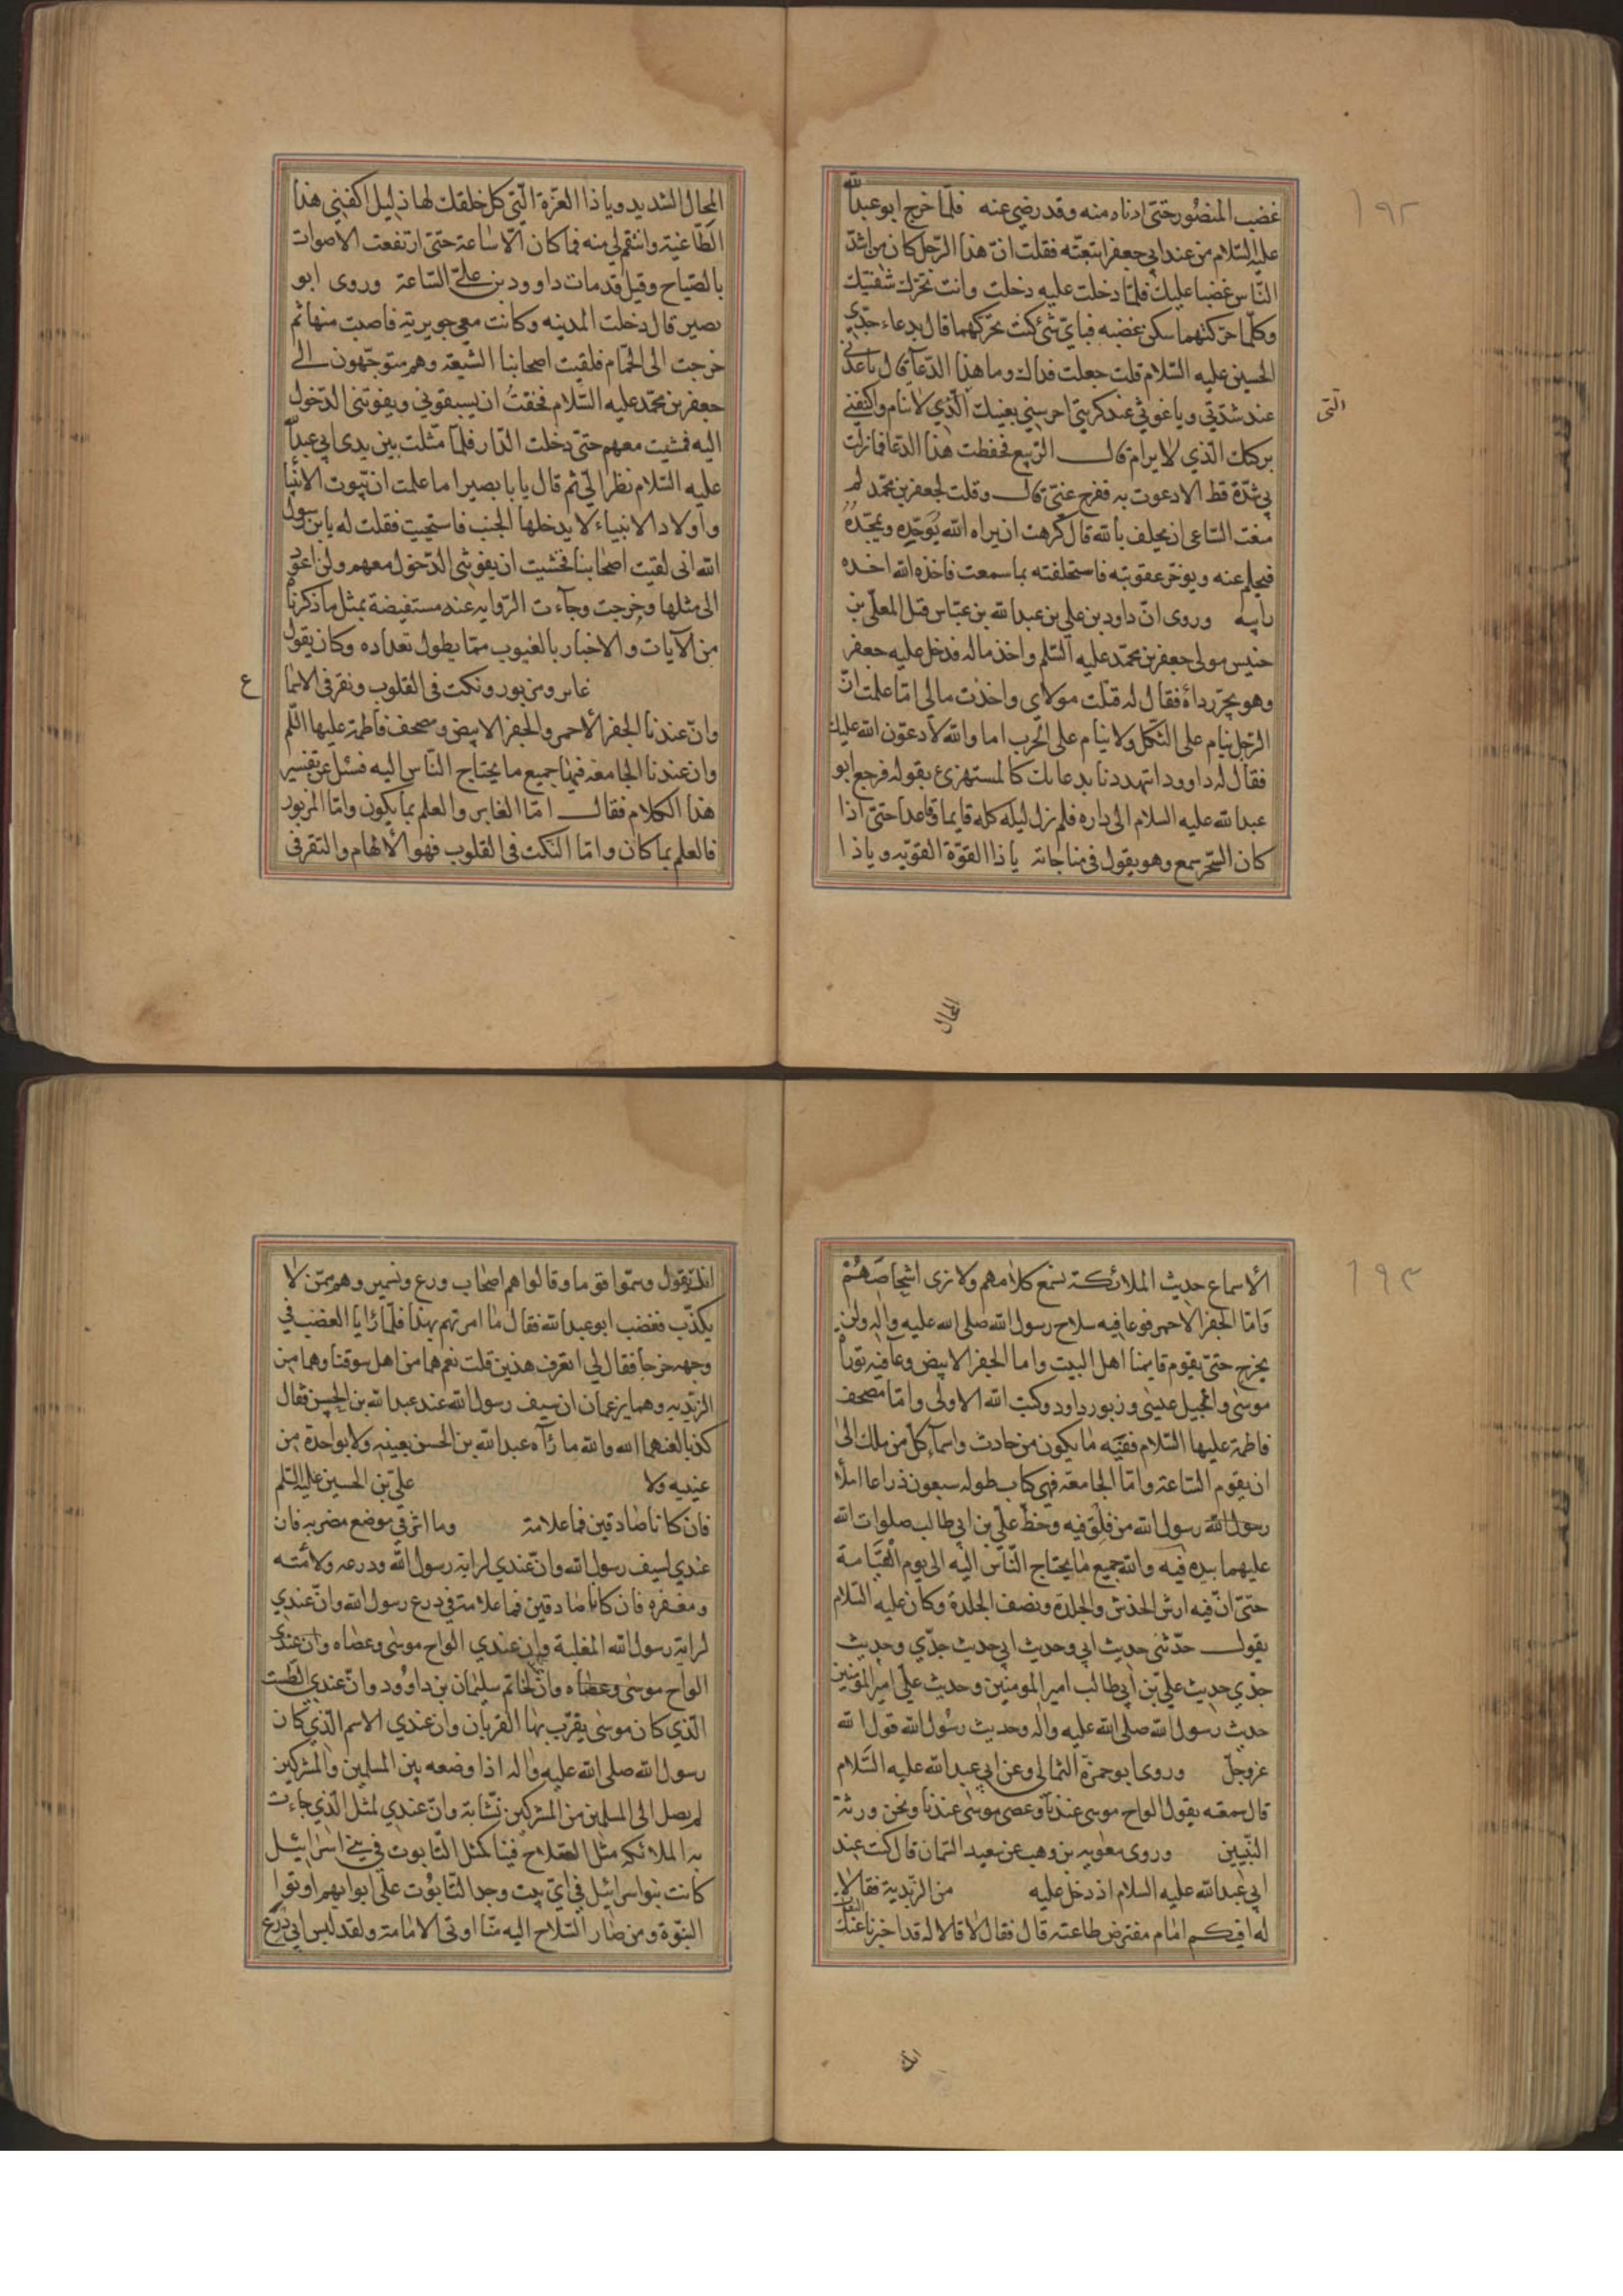 ١٩٢
غضب المنصور حتى ادناه منه وقد رضى عنه فلما خرج ابو عبد الله
عليه السلام من عند ابي جعفر اتبعته فقلت ان هذا الرجل كان من اشد
الناس غضبا عليك فلما دخلت عليه دخلت وانت تحرك شفتيك
وكلما حركتهما سكن غضبه فباي شئ كنت تحركهما قال بدعاء جدي
الحسين عليه السلام قلت جعلت فداك وما هذا الدعا قال يا عدتي
عند شدتي ويا غوثي عند كربتي احرسني بعينك الذي لا تنام واكنفني
التى
بركنك الذي لا يرام قال الربيع فحفظت هذا الدعا فما نزلت
بي شدة قط الا دعوت به ففرج عني قال وقلت لجعفر بن محمد لم
منعت الساعى ان يحلف بالله قال كرهت ان يراه الله يوحده ويمجده
فيحلم عنه ويوخر عقوبته فاستحلفته بما سمعت فاخذه الله اخذه
رابيه وروى ان داود بن علي بن عبد الله بن عباس قتل المعلى بن
خنيس مولى جعفر بن محمد عليه السلم واخذ ماله فدخل عليه جعفر
وهو يجر رداه فقال له قتلت مولاي واخذت مالى اما علمت ان
الرجل ينام على الثكل ولا ينام على الحرب اما والله لادعون الله عليك
فقال له داوود اتهددنا بدعائك كالمستهزئ بقوله فرجع ابو
عبد الله عليه السلام الى داره فلم يزل ليله كله قايما وقاعدا حتى اذا
كان السحر سمع وهو يقول في مناجاته يا ذا القوة القويه و يا ذا
المحال
المحال الشديد ويا ذا العزة التى كل خلقك لها ذليل اكفنى هذا
الطاغية وانتقم لي منه فما كان الا ساعة حتى ارتفعت الاصوات
بالصياح وقيل قد مات داوود بن علي الساعة وروى ابو
بصير قال دخلت المدينه وكانت معي جويرية فاصبت منها ثم
خرجت الى الحمام فلقيت اصحابنا الشيعة وهم متوجهون الى
جعفر بن محمد عليه السلام فخفت ان يسبقوني ويفوتنى الدخول
اليه فمشيت معهم حتى دخلت الدار فلما مثلت بين يدى ابي عبد الله
عليه السلام نظر الي ثم قال يا با بصير اما علمت ان بيوت الانبيا
واولاد الانبياء لا يدخلها الجنب فاستحييت فقلت له يا بن رسول
الله انى لقيت اصحابنا فخشيت ان يفوتنى الدخول معهم ولن اعود
الى مثلها وخرجت وجاءت الروايه عنه مستفيضة بمثل ما ذكرنا
من الآيات والاخبار بالغيوب مما يطول تعداده وكان يقول
غابر ومزبور ونكت فى القلوب ونقر فى الاسما
ع
وان عندنا الجفر الاحمر والجفر الابيض ومصحف فاطمة عليها السلم
وان عندنا الجامعه فيها جميع ما يحتاج الناس اليه فسئل عن تفسير
هذا الكلام فقال اما الغابر والعلم بما يكون واما المزبور
فالعلم بما كان واما النكت فى القلوب فهو الالهام والنقر فى
١٩٣
الاسماع حديث الملائكة نسمع كلامهم ولا نرى اشخاصهم
واما الجفر الاحمر فوعا فيه سلاح رسول الله صلى الله عليه واله ولن
يخرج حتى يقوم قايمنا اهل البيت واما الجفر الابيض وعا فيه توراة
موسى وانجيل عيسى وزبور داود وكتب الله الاولى واما مصحف
فاطمة عليها السلام ففيه ما يكون من حادث واسماء كل من يملك الى
ان يقوم الساعة واما الجامعة فهي كتاب طوله سبعون ذراعا املأ
رسول الله رسول الله من فلق فيه وخط علي بن ابي طالب صلوات الله
عليهما بيده فيه والله جميع ما يحتاج الناس اليه الى يوم القيامة
حتى ان فيه ارش الخدش والجلدة ونصف الجلدة وكان عليه السلام
يقول حدثنى حديث ابي وحديث ابي حديث جدي وحديث
جدي حديث علي بن ابي طالب امير المومنين وحديث علي امير المومنين
حديث رسول الله صلى الله عليه واله وحديث رسول الله قول الله
عز وجل وروى ابو حمزة الثمالى وعن ابي عبد الله عليه السلام
قال سمعته يقول الواح موسى عندنا وعصى موسى عندنا ونحن ورثة
النبيين وروى معويه بن وهب عن سعيد السمان قال كنت عند
ابي عبد الله عليه السلام اذ دخل عليه من الزيدية فقالا
له افيكم امام مفترض طاعته قال فقال لا قالا له قد اخبرنا عنك الثقات
انك
انك تقول وسموا قوما وقالوا هم اصحاب ورع وتشمير وهم ممن لا
يكذب فغضب ابو عبد الله فقال ما امرتهم بهذا فلما رايا الغضب في
وجهه خرجا فقال لي اتعرف هذين قلت نعم هما من اهل سوقنا وهما من
الزيديه وهما يزعمان ان سيف رسول الله عند عبد الله بن الحسن فقال
كذبا لعنهما الله والله ما رآه عبد الله بن الحسن بعينيه ولا بواحدة من
عينيه ولا علي بن الحسين عليه السلم
فان كانا صادقين فما علامة وما اثر في موضع مضربه فان
عندي لسيف رسول الله وان عندي لراية رسول الله ودرعه ولامته
ومغفره فان كانا صادقين فما علامة في درع رسول الله وان عندي
لراية رسول الله المغلبة وان عندي الواح موسى وعصاه وان عندي
الواح موسى وعصاه وان لخاتم سليمان بن داوود وان عندي الطست
الذي كان موسى يقرب بها القربان وان عندي الاسم الذي كان
رسول الله صلى الله عليه واله اذا وضعه بين المسلمين والمشركين
لم يصل الى المسلمين من المشركين نشابة وان عندي لمثل الذي جاءت
به الملائكه مثل السلاح فينا كمثل التابوت في بني اسرائيل
كانت بنو اسرائيل في اي بيت وجد التابوت على ابوابهم اوتوا
النبوة ومن صار السلاح اليه منا اوتى الامامة ولقد لبس ابي درع